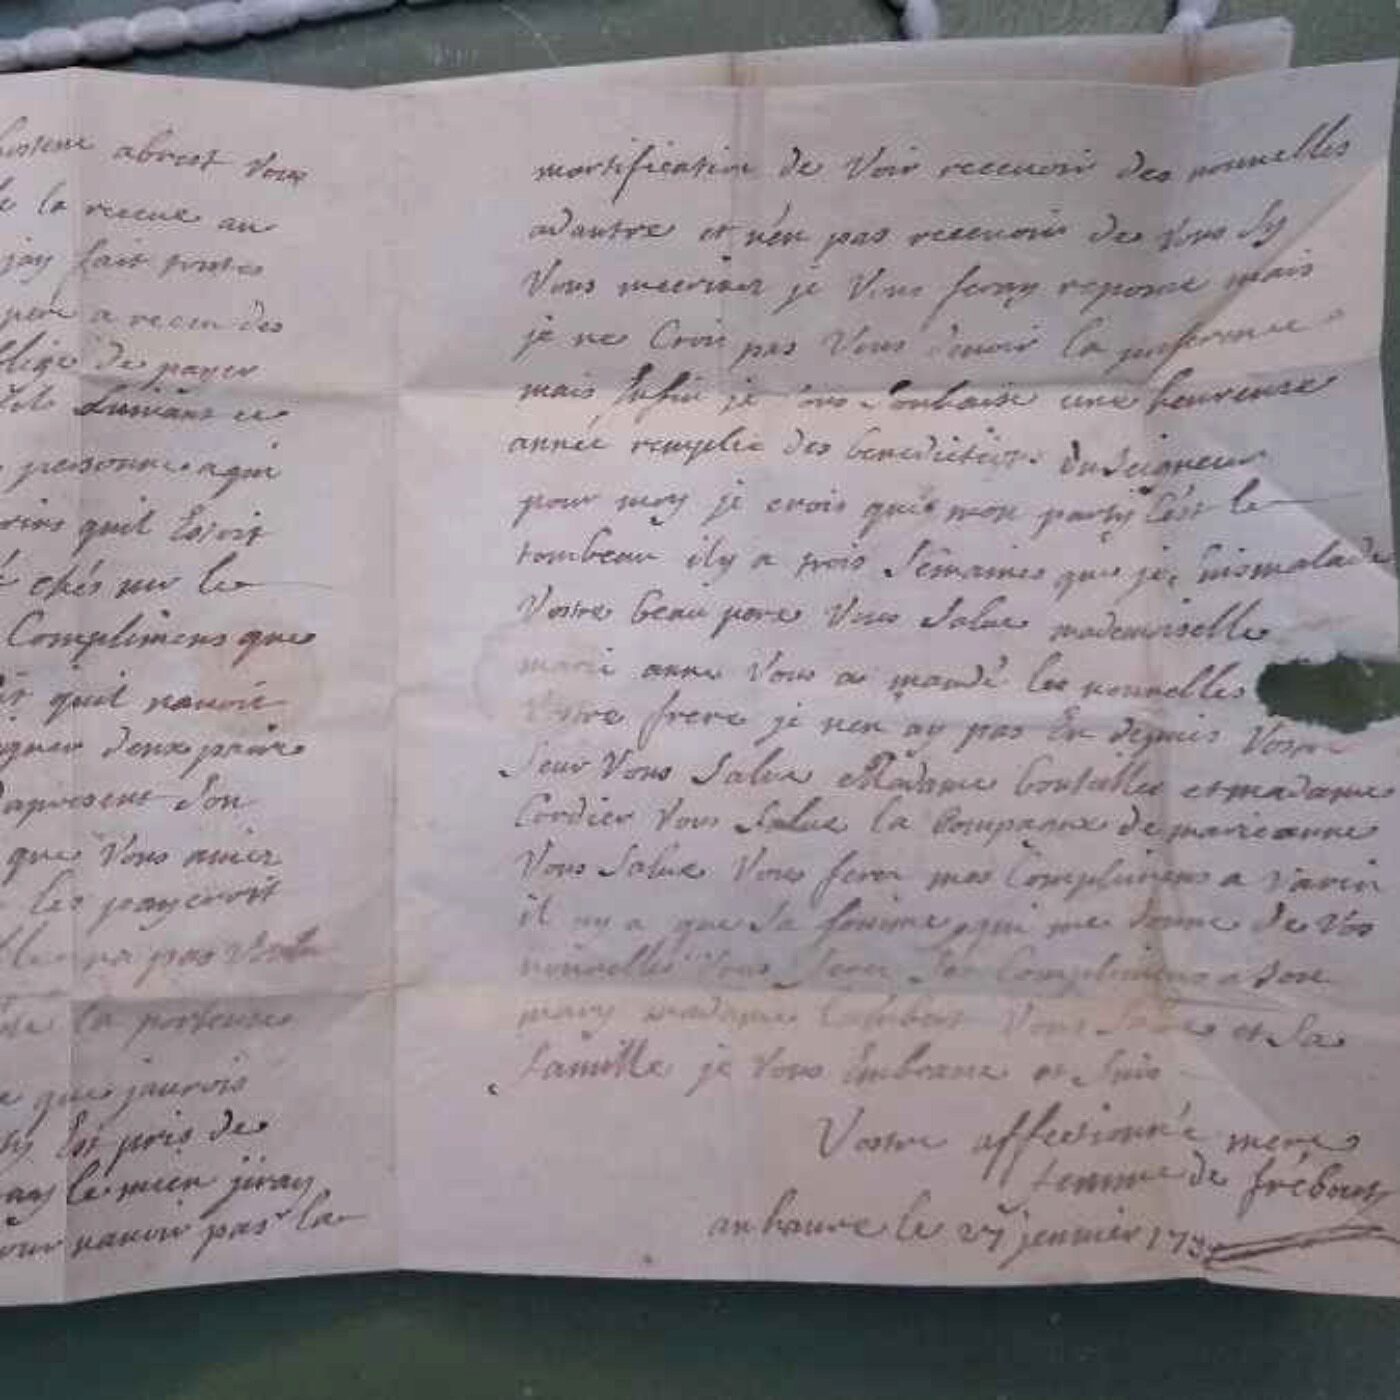 abrest vous
de la receue au
jay fait toutes
pere a receu des
de payer
ce
personne a qui
quil Estoit
chés mr le
Complimens que
quil navoit
deux paire
apresent Son
que Vous aviez
les payeroit
pas Voulu
la porteuse
que jaurois
Est pris de
le mien jiray
navoir pas la
mortification de Voir recevoir des nouvelles
dautre et nen pas recevoir de Vous Sy
Vous mecrivez je Vous feray reponse mais
je ne Crois pas Vous devoir la preference
mais Enfin je Vous Souhaise une heureuse
année remplie des benedictions du Seigneur
pour moy je crois que mon party Cest le
tombeau il y a trois Semaines que je suis malade
Vostre beau pere Vous Salue mademoiselle
marie anne Vous a mandé les nouvelles
Vostre frere je nen ay pas Eu depuis Vostre
Seur Vous Salue Madame et madame
Cordier Vous Salue la de marie anne
Vous Salue Vous ferez mes Complimens a Varin
il ny a que Sa femme qui me donne de Vos
nouvelles Vous ferez Ses Complimens a Son
mary madame Lambert Vous Salue et Sa
famille je Vous Embrasse et Suis
Vostre affectionné mere
femme de frébourg
au havre le 27 jenvier 173